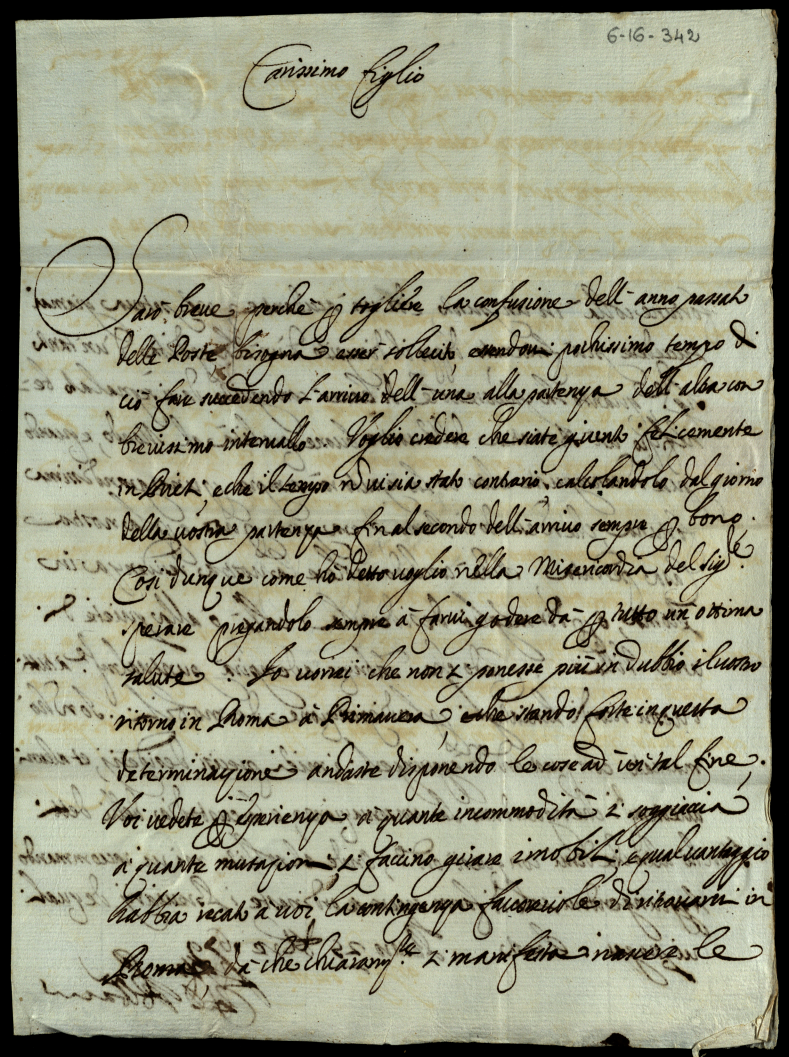 6-16-342
Carissimo Figlio
Saro breve perche p togliere la confusione dell'anno passato
delle Poste bisogna esser sollecito essendovi pochissimo tempo di
ciò fare succedendo l'arrivo dell'una alla partenza dell'altra con
brevissimo intervallo. Voglio credere che siate giunto felicemente
in e che il tempo nō vi sia stato contrario, calcolandolo dal giorno
della vostra partenza fin al secondo dell'arrivo sempre p bono.
Cosi dunque come ho detto voglio nella Misericordia del Sig.re
sperare pregandolo sempre à farvi godere da p tutto un ottima
salute. Io vorrei che non si ponesse più in dubbio il vostro
ritorno in Roma à Primavera, e che stando forte in questa
determinazione andaste disponendo le cose ad un tal fine.
Voi vedete p esperienza a quante incommodità si soggiaccia,
a quante mutazioni si faccino girare i mobili, e qual vantaggio
habbia recato a voi la contingenza favorevole di ritrovarvi in
Roma da che si manifesta le